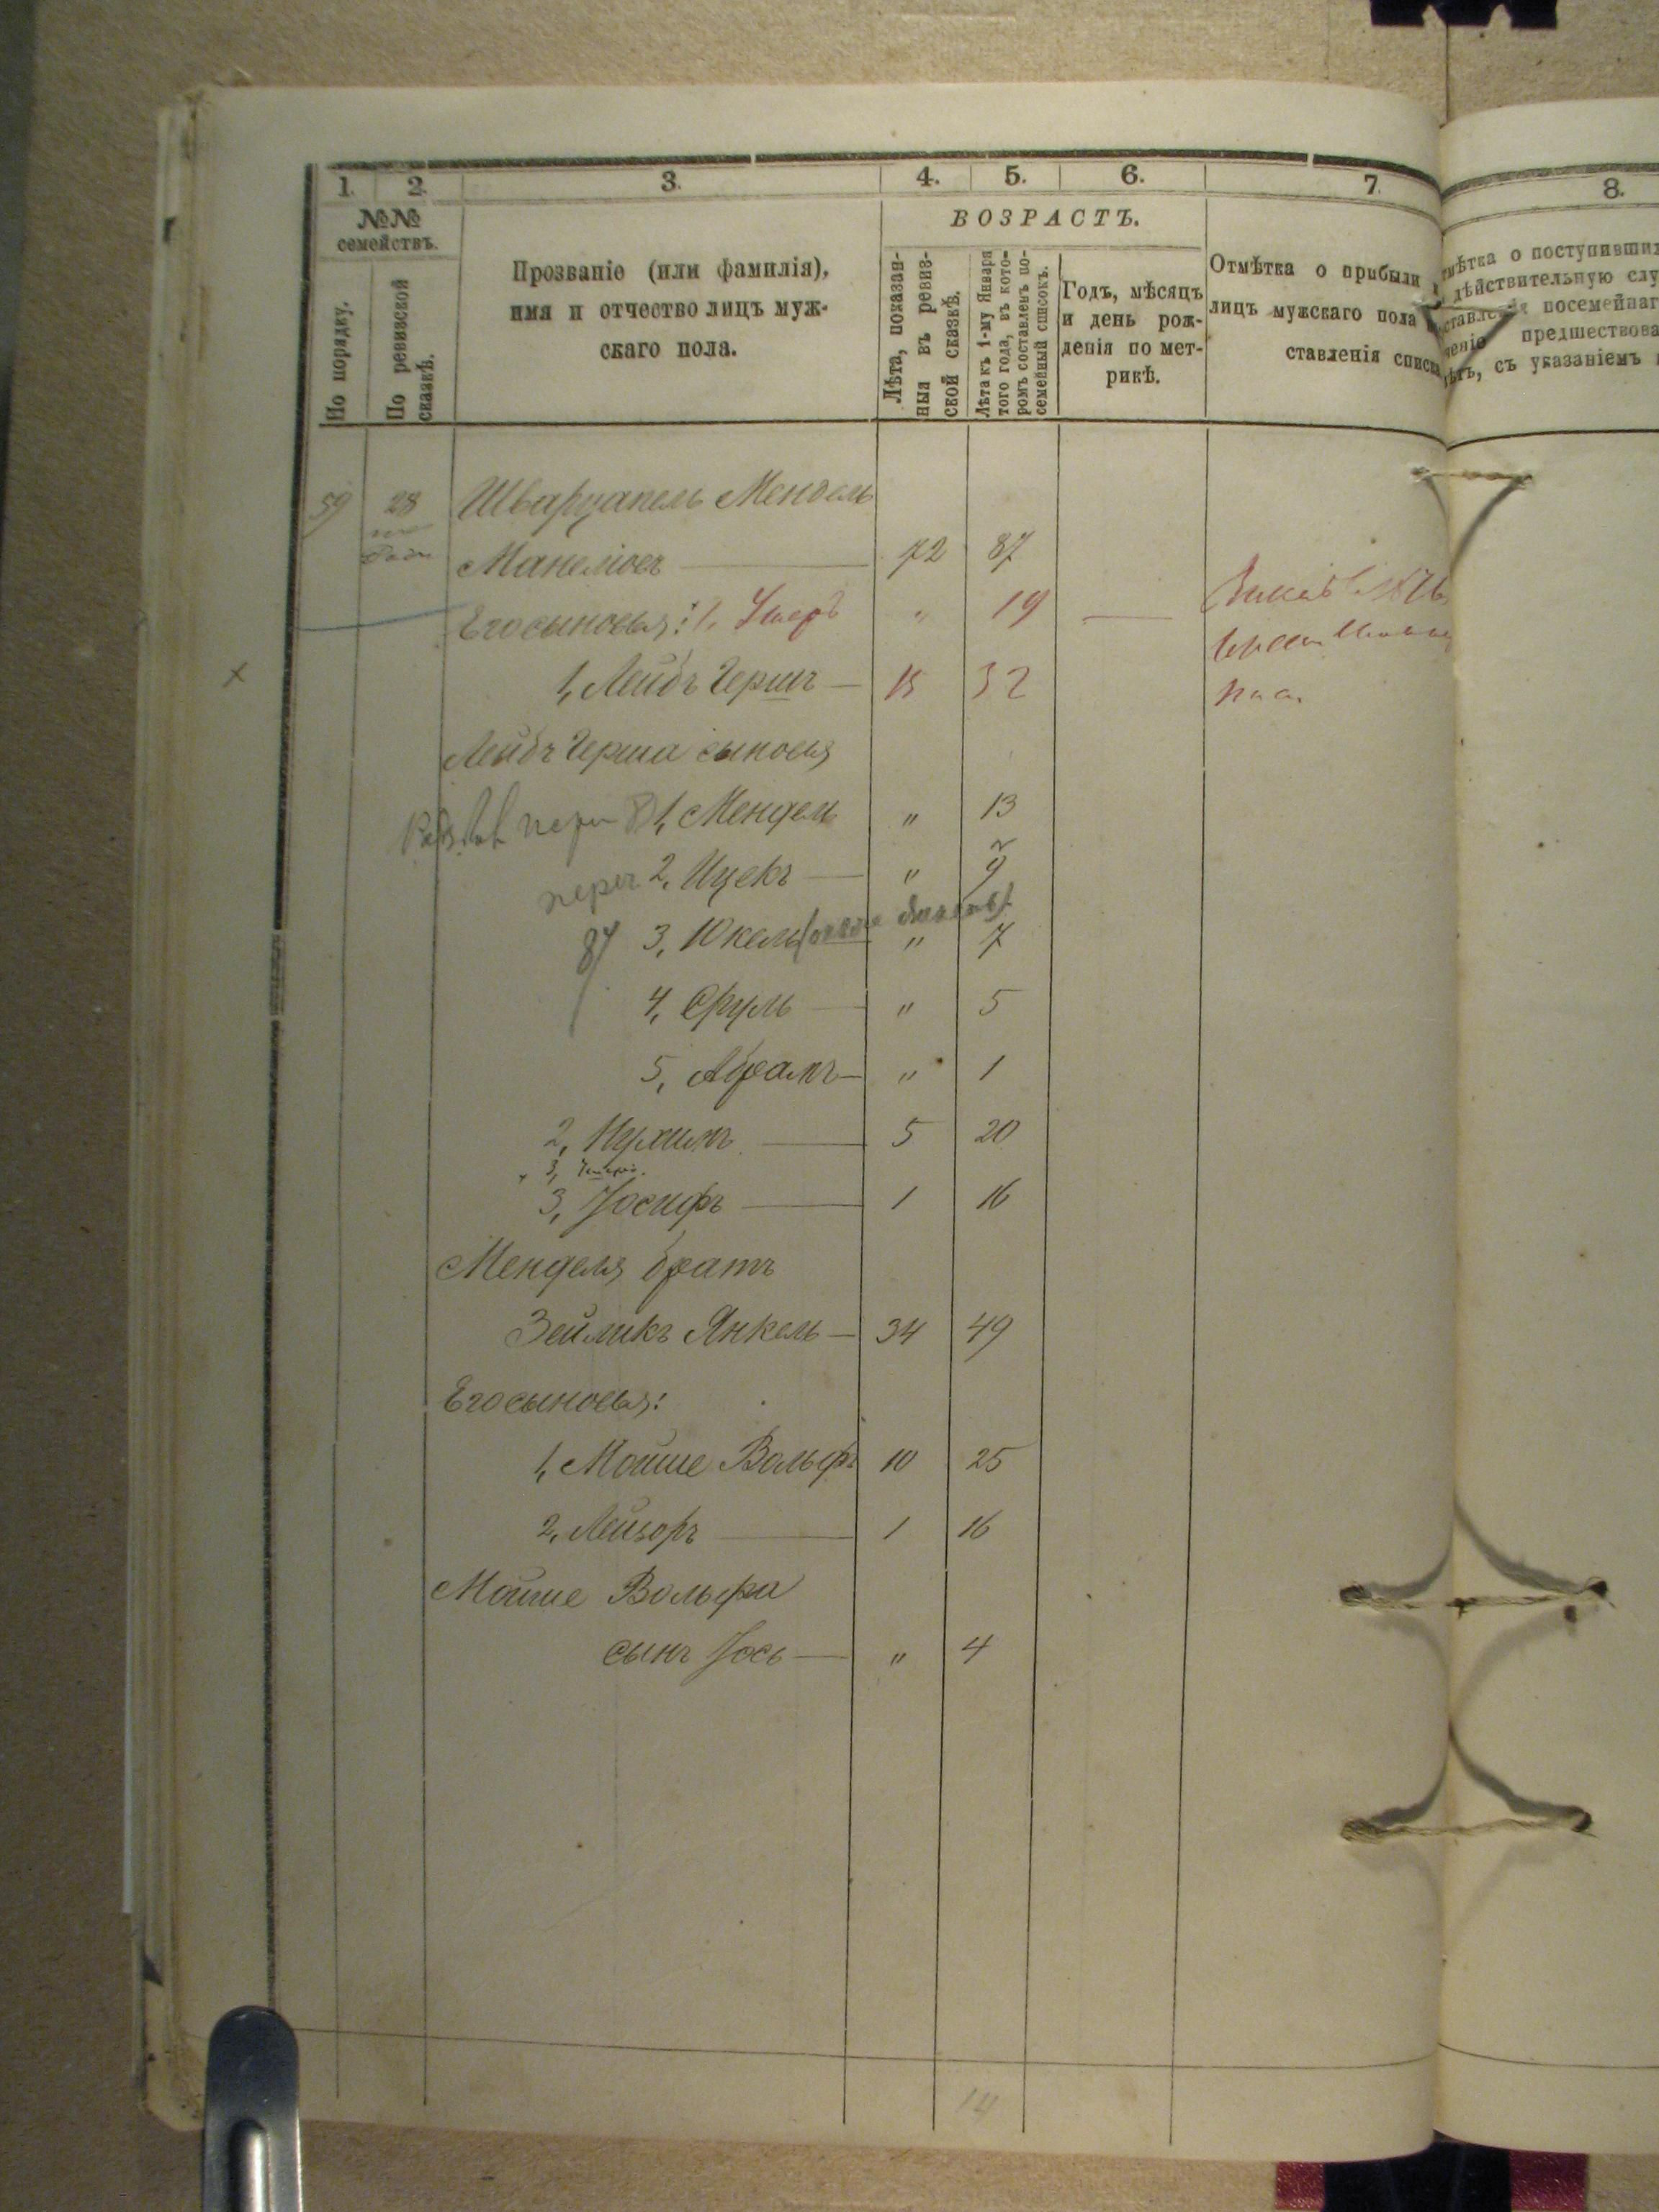 1. 2. 3. 4. 5. 6. 7. 8.
№№ семействъ.
По порядку.
По ревизской сказкѣ.
Прозваніе (или фамилія),
имя и отчество лицъ муж-
скаго пола.
ВОЗРАСТЪ.
Лѣта, показан-
ныя въ ревиз-
ской сказкѣ.
Лѣта къ 1-му Января
того года, въ кото-
ромъ составленъ по-
семейный списокъ.
Годъ, мѣсяцъ
и день рож-
денія по мет-
рикѣ.
Отмѣтка о прибыли
лицъ мужскаго пола
ставленія списка
о поступившихъ
дѣйствительную слу
посемейнаг
предшествова
съ указаніемъ
59 28 Шварцапель Мендель
72 87
Его сыновья: 1, Ушеръ " 19
1, Лейбъ Гершъ 15 32
Лейбъ Герша сыновья
1, Мендель " 13
2, Ицекъ " 9
87 3, Юкель " 7
4, Сруль " 5
5, Абрамъ " 1
2, Нухимъ 5 20
3, Ушеръ.
3, Іосифъ 1 16
Менделя братъ
Зейликъ Янкель 34 49
Его сыновья:
1, Мойше Вольфъ 10 25
2, Лейзоръ 1 16
Мойше Вольфа
сынъ Іось " 4
14